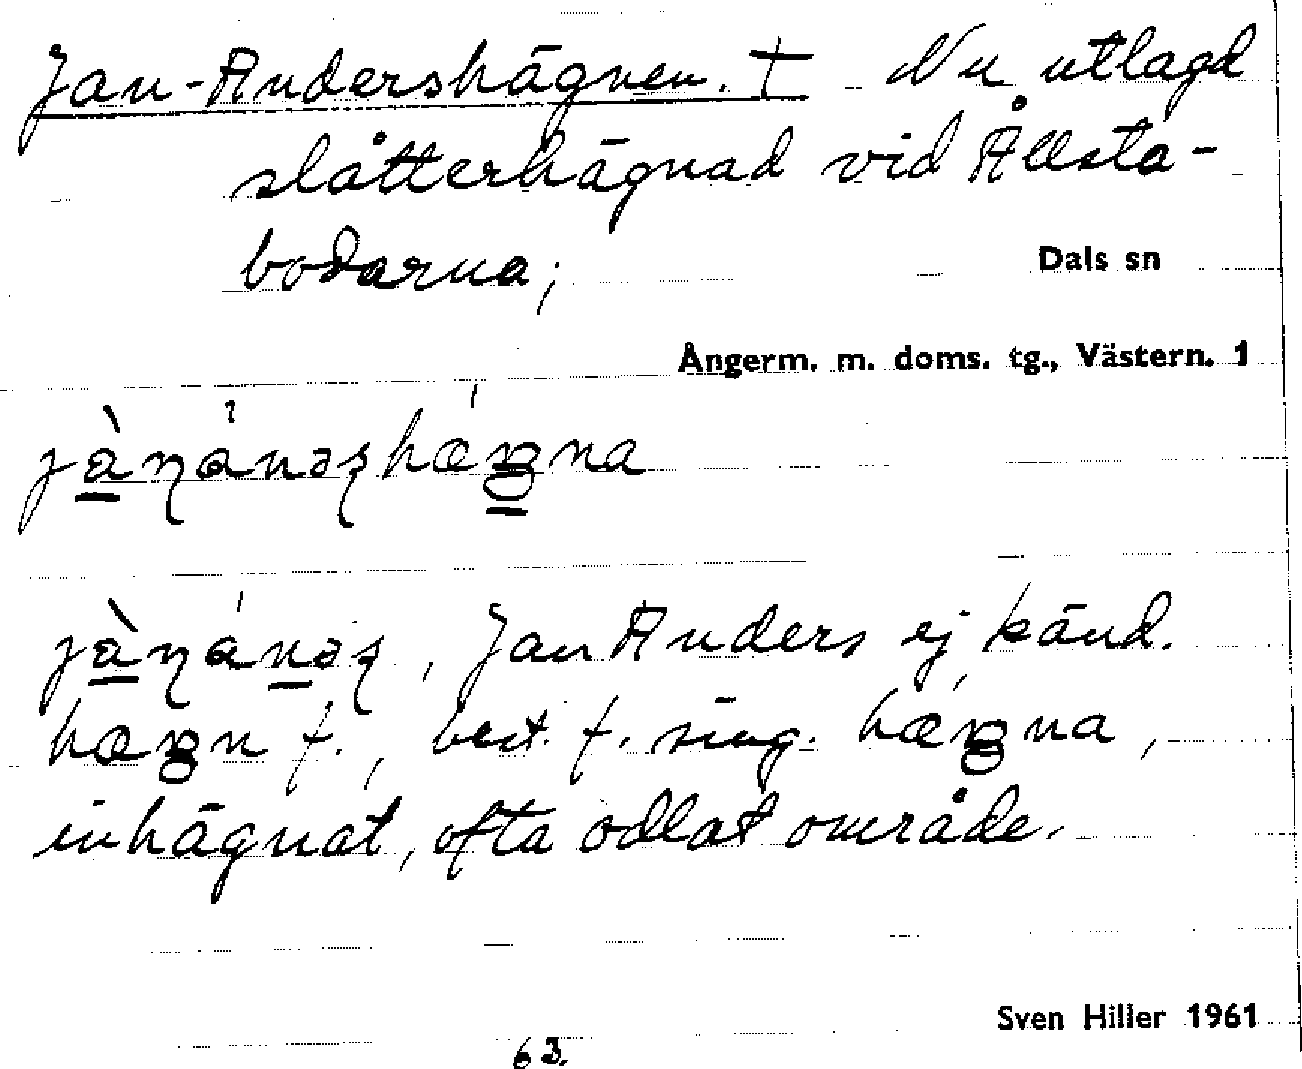 Jan-Andershägnen. † Nu utlagd
slåtterhägnad vid Ållsta-
bodarna;
Dals sn
Ångerm. m. doms. tg., Västern. 1
, Jan Anders ej känd.
f., best. f. sing.
inhägnat, ofta odlat område.
Sven Hiller 1961
63.